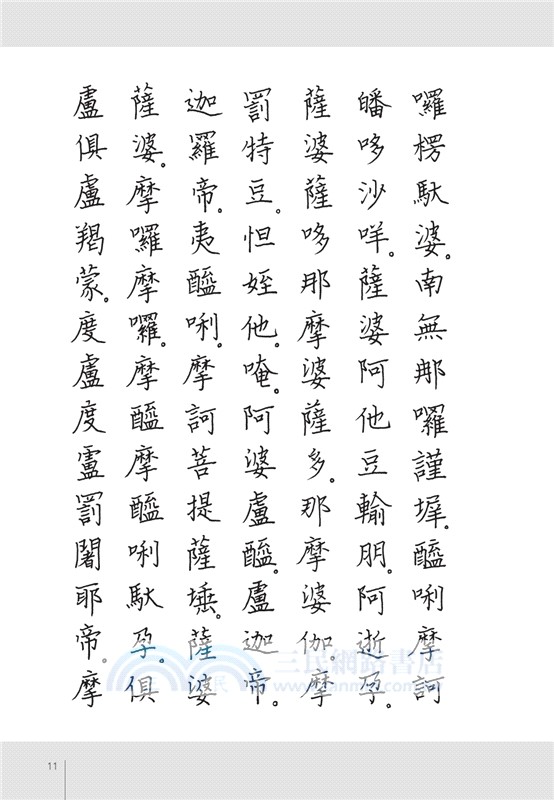 囉楞馱婆。南無那囉謹墀。醯唎摩訶
皤哆沙咩。薩婆阿他豆輸朋。阿逝孕。
薩婆薩哆那摩婆薩多。那摩婆伽。摩
罰特豆。怛姪他。唵。阿婆盧醯。盧迦帝。
迦羅帝。夷醯唎。摩訶菩提薩埵。薩婆
薩婆。摩囉摩囉。摩醯摩醯唎馱孕。俱
盧俱盧羯蒙。度盧度盧罰闍耶帝。摩
三民網路書店
11